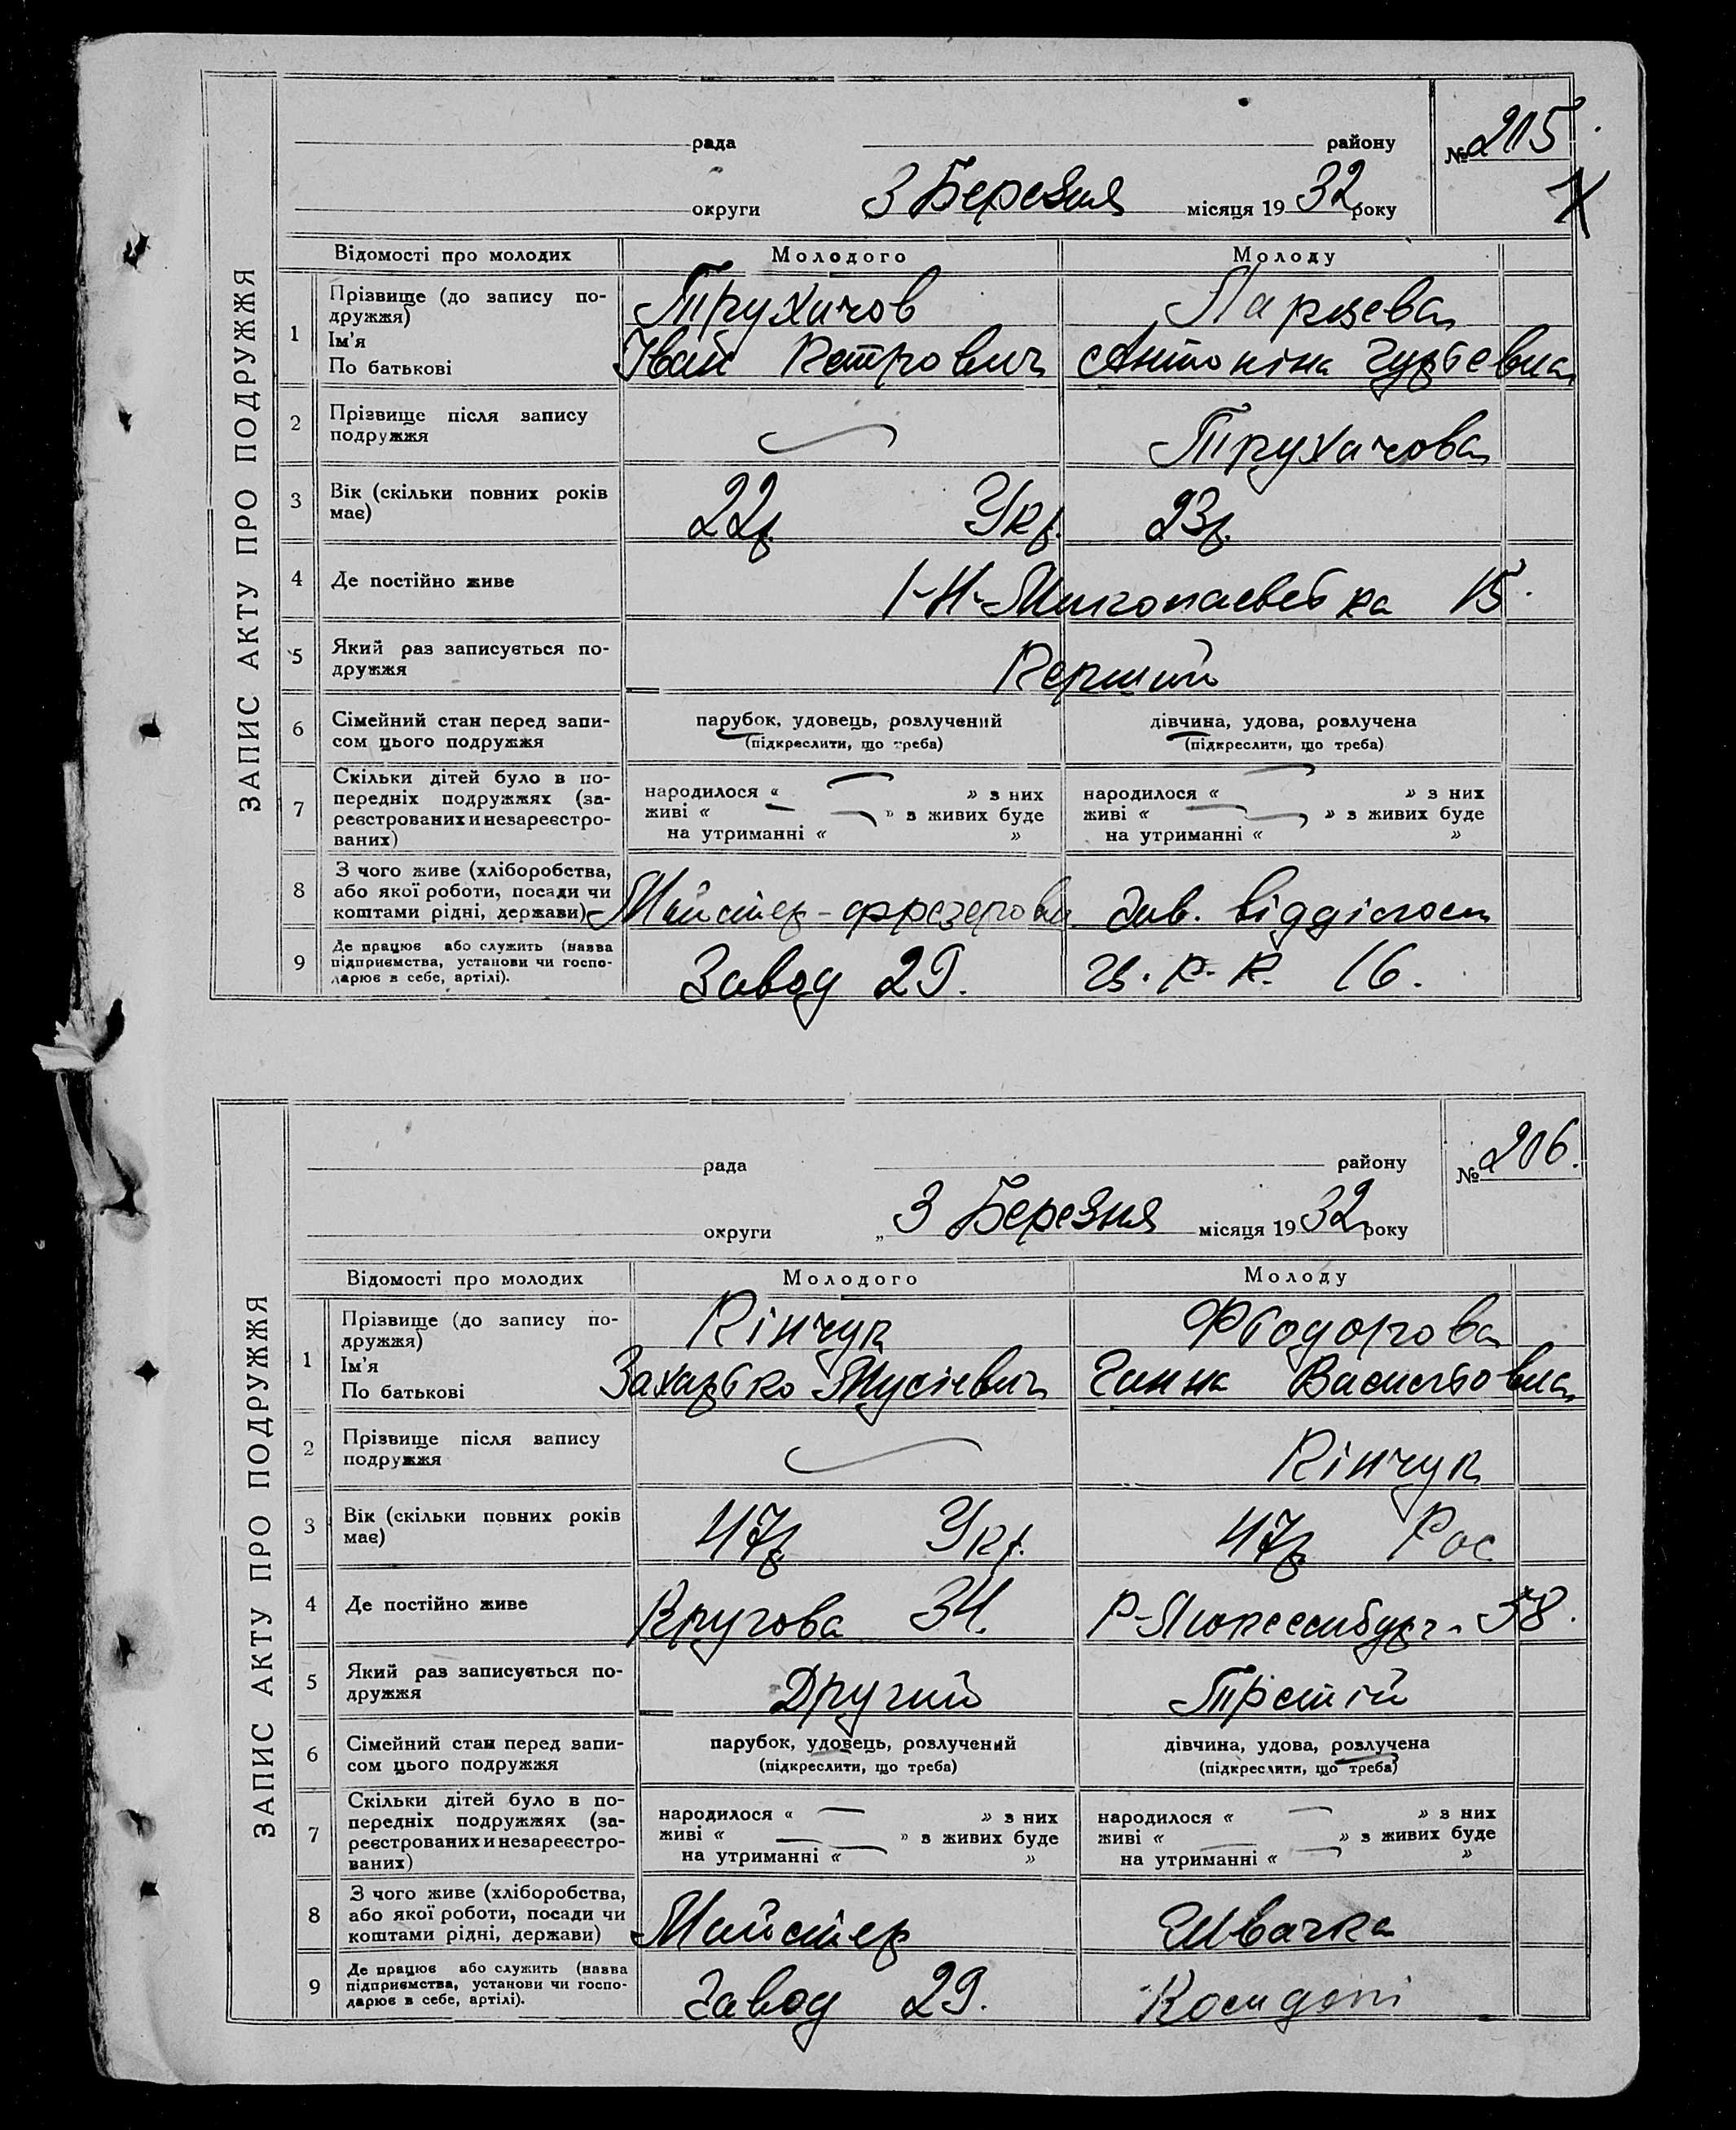 ЗАПИС АКТУ ПРО ПОДРУЖЖЯ
рада району № 205
округи 3 Березня місяця 1932 року
Відомості про молодих Молодого Молоду
1 Прізвище (до запису по-
дружжя) Трухачов
Ім'я
По батькові Іван Петрович Антоніна
2 Прізвище після запису
подружжя Трухачова
3 Вік (скільки повних років
має) 22р. Укр. 23р.
4 Де постійно живе 15.
5 Який раз записується по-
дружжя Перший
6 Сімейний стан перед запи-
сом цього подружжя парубок, удовець, розлучений дівчина, удова, розлучена
(підкреслити, що треба) (підкреслити, що треба)
7 Скільки дітей було в по-
передніх подружжях (за-
реєстрованих и незареєстро-
ваних)
народилося « » з них народилося « » з них
живі « » з живих буде живі « » з живих буде
на утриманні « » на утриманні « »
8 З чого живе (хліборобства,
або якої роботи, посади чи
коштами рідні, держави) Майстер-фрезеровщ Зав. відділом
9 Де працює або служить (назва
підприємства, установи чи госпо-
дарює в себе, артілі). Завод 29. 16.
ЗАПИС АКТУ ПРО ПОДРУЖЖЯ
рада району № 206.
округи „ 3 Березня місяця 1932 року
Відомості про молодих Молодого Молоду
1 Прізвище (до запису по-
дружжя) Кінчук Фьодорова
Ім'я
По батькові Захарко Мусієвич Ганна Васильовна
2 Прізвище після запису
подружжя Кінчук
3 Вік (скільки повних років
має) 47р. Укр. 47р. Рос
4 Де постійно живе Кругова 34. Р-Люксембург-58.
5 Який раз записується по-
дружжя Другий Третій
6 Сімейний стан перед запи-
сом цього подружжя парубок, удовець, розлучений дівчина, удова, розлучена
(підкреслити, що треба) (підкреслити, що треба)
7 Скільки дітей було в по-
передніх подружжях (за-
реєстрованих и незареєстро-
ваних)
народилося « » з них народилося « » з них
живі « » з живих буде живі « » з живих буде
на утриманні « » на утриманні « »
8 З чого живе (хліборобства,
або якої роботи, посади чи
коштами рідні, держави) Майстер Швачка
9 Де працює або служить (назва
підприємства, установи чи госпо-
дарює в себе, артілі). Завод 29.